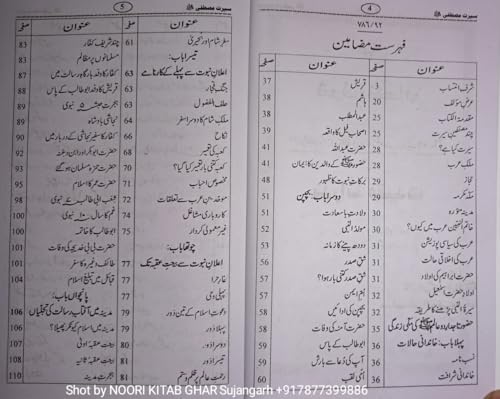 سیرت مصطفیٰ ﷺ 4
۷۸۶/۹۲
فہرست مضامین
عنوان صفحہ
شرف انتساب 3
عرض مؤلف 20
مقدمۃ الکتاب 22
چند مصنفین سیرت 25
سیرت کیا ہے؟ 28
ملک عرب 28
حجاز 29
مکہ مکرمہ 29
مدینہ منورہ 30
خاتم النبیین عرب میں کیوں؟ 30
عرب کی سیاسی پوزیشن 31
عرب کی اخلاقی حالت 31
حضرت ابراہیم کی اولاد 31
اولاد حضرت اسمٰعیل 32
سیرۃ النبی پڑھنے کا طریقہ 32
حضور تاجدار دو عالم ﷺ کی مکی زندگی 35
پہلا باب: خاندانی حالات 36
نسب نامہ 36
خاندانی شرافت 36
عنوان صفحہ
قریش 37
ہاشم 38
عبدالمطلب 38
اصحاب فیل کا واقعہ 39
حضرت عبداللہ 41
حضور ﷺ کے والدین کا ایمان 41
برکات نبوت کا ظہور 48
دوسرا باب: بچپن 51
ولادت باسعادت 51
مولد النبی 52
دودھ پینے کا زمانہ 53
شق صدر 56
شق صدر کتنی بار ہوا؟ 57
ام ایمن 57
بچپن کی ادائیں 58
حضرت آمنہ کی وفات 58
ابوطالب کے پاس 59
آپ کی دعا سے بارش 59
امی لقب 60
سیرت مصطفیٰ ﷺ 5
عنوان صفحہ
سفر شام اور بحیریٰ 61
تیسرا باب:
اعلان نبوت سے پہلے کے کارنامے 63
جنگ فجار 63
حلف الفضول 63
ملک شام کا دوسرا سفر 64
نکاح 66
کعبہ کی تعمیر 68
کعبہ کتنی بار تعمیر کیا گیا؟ 70
مخصوص احباب 71
موحدین عرب سے تعلقات 72
کاروباری مشاغل 74
غیر معمولی کردار 75
چوتھا باب:
اعلان نبوت سے بیعت عقبہ تک 77
غار حرا 77
پہلی وحی 77
دعوت اسلام کے تین دور 79
پہلا دور 79
دوسرا دور 80
تیسرا دور 81
رحمت عالم پر ظلم و ستم 81
عنوان صفحہ
چند شریر کفار 83
مسلمانوں پر مظالم 83
کفار کا وفد بارگاہ رسالت میں 87
قریش کا وفد ابوطالب کے پاس 88
ہجرت حبشہ ۵ نبوی 89
نجاشی بادشاہ 89
کفار کا سفیر نجاشی کے دربار میں 90
حضرت ابوبکر اور ابن دغنہ 92
حضرت حمزہ مسلمان ہو گئے 93
حضرت عمر کا اسلام 95
شعب ابی طالب ۷ نبوی 98
غم کا سال ۱۰ نبوی 100
ابوطالب کا خاتمہ 100
حضرت بی بی خدیجہ کی وفات 101
طائف وغیرہ کا سفر 101
قبائل میں تبلیغ اسلام 104
پانچواں باب:
مدینہ میں آفتاب رسالت کی تجلیاں 106
مدینہ میں اسلام کیونکر پھیلا؟ 106
بیعت عقبہ اولیٰ 107
بیعت عقبہ ثانیہ 108
ہجرت مدینہ 110
Shot by NOORI KITAB GHAR Sujangarh +917877399886